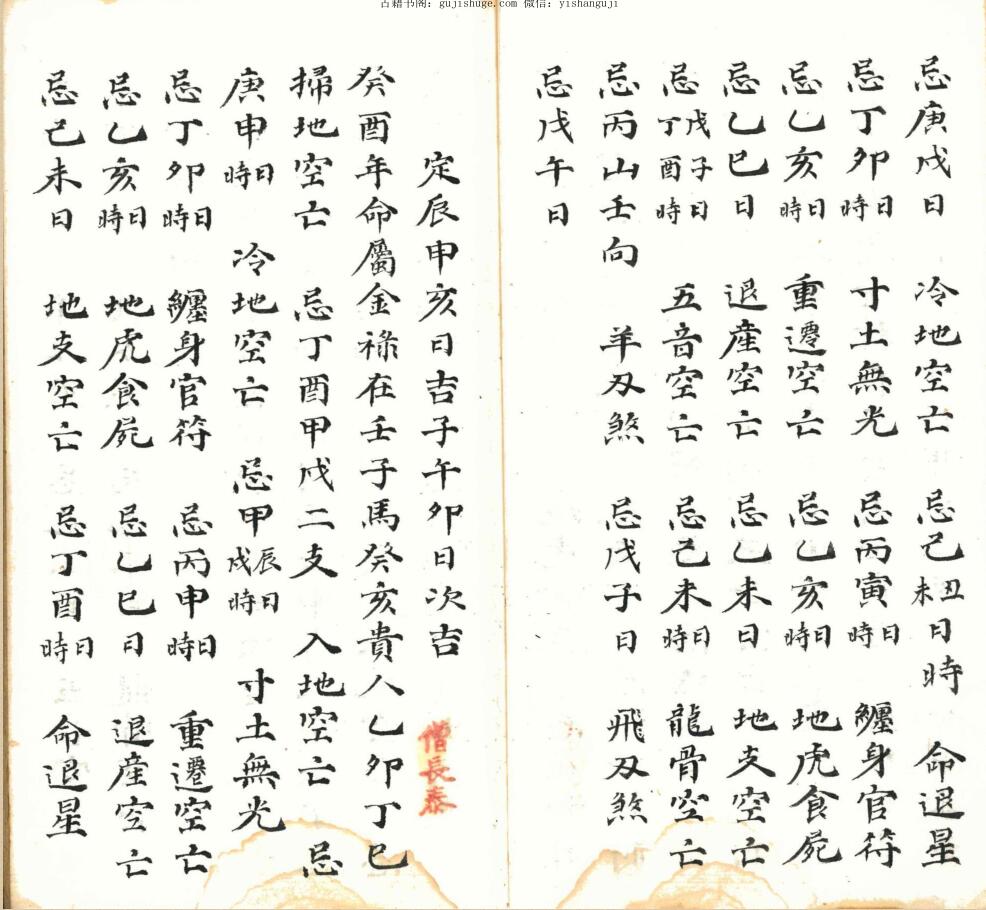 古籍书阁：gujishuge.com 微信：yishanguji
忌庚戌日 冷地空亡 忌己丑未日時 命退星
忌丁卯日時 寸土無光 忌丙寅日時 纏身官符
忌乙亥日時 重遷空亡 忌乙亥日時 地虎食屍
忌乙巳日 退產空亡 忌乙未日 地支空亡
忌戊子日丁酉時 五音空亡 忌己未日時 龍骨空亡
忌丙山壬向 羊刃煞 忌戊子日 飛刃煞
忌戊午日
定辰申亥日吉子午卯日次吉
僧長泰
癸酉年命屬金祿在壬子馬癸亥貴人乙卯丁巳
掃地空亡 忌丁酉甲戌二支 入地空亡 忌
庚申日時 冷地空亡 忌甲辰戌日時 寸土無光
忌丁卯日時 纏身官符 忌丙申日時 重遷空亡
忌乙亥日時 地虎食屍 忌乙巳日 退產空亡
忌己未日 地支空亡 忌丁酉日時 命退星